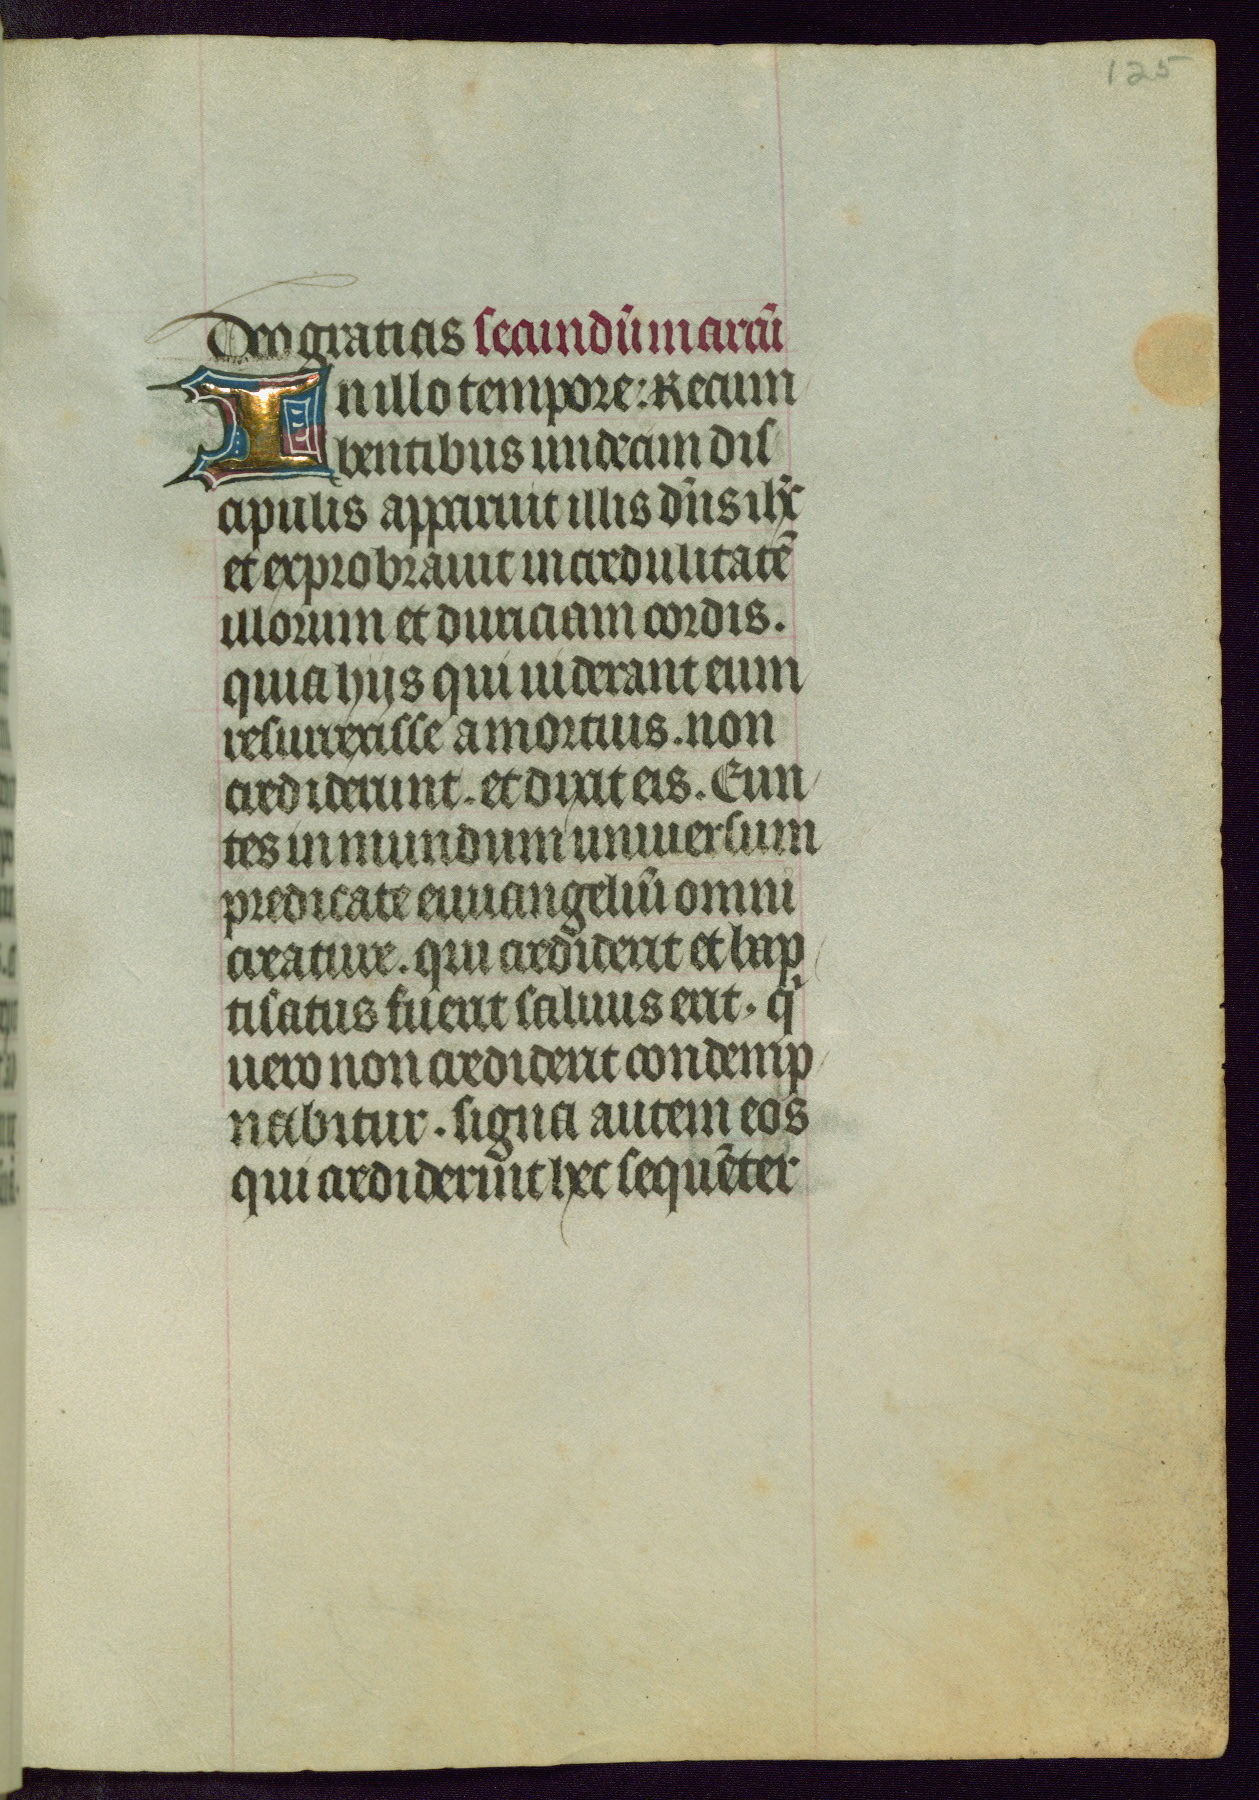 125
Deo gratias secundū marcū
In illo tempore: Recum
bentibus undecim dis
cipulis apparuit illis dn̄s ihc̄
et exprobrauit incredulitatē
illorum et duriciam cordis.
quia hijs qui uiderant eum
resurrexisse a mortuis. non
crediderunt. et dixit eis. Eun
tes in mundum uniuersum
predicate euuangeliū omni
creature. qui crediderit et bap
tisatus fuerit saluus erit. q̇
uero non crediderit condemp
nabitur. signa autem eos
qui crediderūt hec sequēter